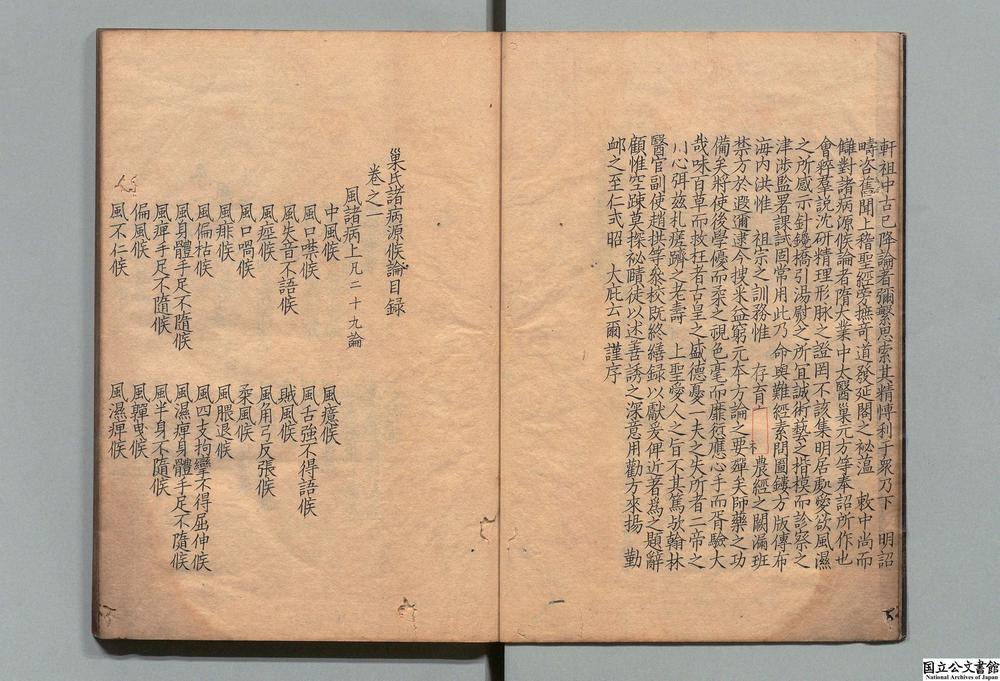 軒祖中古已降論者彌繁思索其精博利于衆乃下　明詔
疇咨舊聞上稽聖經旁摭竒道發延閣之祕藴　敕中尚而
讎對諸病源候論者隋大業中太醫巢元方等奏詔所作也
會粹羣説沈研精理形脉之證罔不該集明居處愛欲風濕
之所感示針鑱撟引湯熨之所宜誠術藝之指模而診察之
津渉監署課試固常用此乃　命與難經素問圖鏤方版傳布
海内洪惟　祖宗之訓務惟　存育　農經之闕漏班
禁方於遐邇逮今搜采益窮元本方論之要殫矣師藥之功
備矣將使後學優而柔之視色毫而靡衍應心手而胥驗大
哉味百草而救枉者古皇之盛德憂一夫之失所者二帝之
用心弭兹札瘥躋之老壽　上聖愛人之旨不其篤歟翰林
醫官副使趙拱等叅校既終繕録以獻爰俾近著爲之題辭
顧惟空踈莫探祕賾徒以述善誘之深意用勸方來揚　勤
䘏之至仁式昭　大庇云爾謹序
巢氏諸病源候論目録
卷之一
風諸病上凡二十九論
中風候
風口噤候
風失音不語候
風痙候
風口喎候
風痱候
風偏枯候
風身體手足不隨候
風痺手足不隨候
偏風候
風不仁候
風癔候
風舌強不得語候
賊風候
風角弓反張候
柔風候
風腲退候
風四支拘攣不得屈伸候
風濕痺身體手足不隨候
風半身不隨候
風軃曳候
風濕痺候
国立公文書館
National Archives of Japan